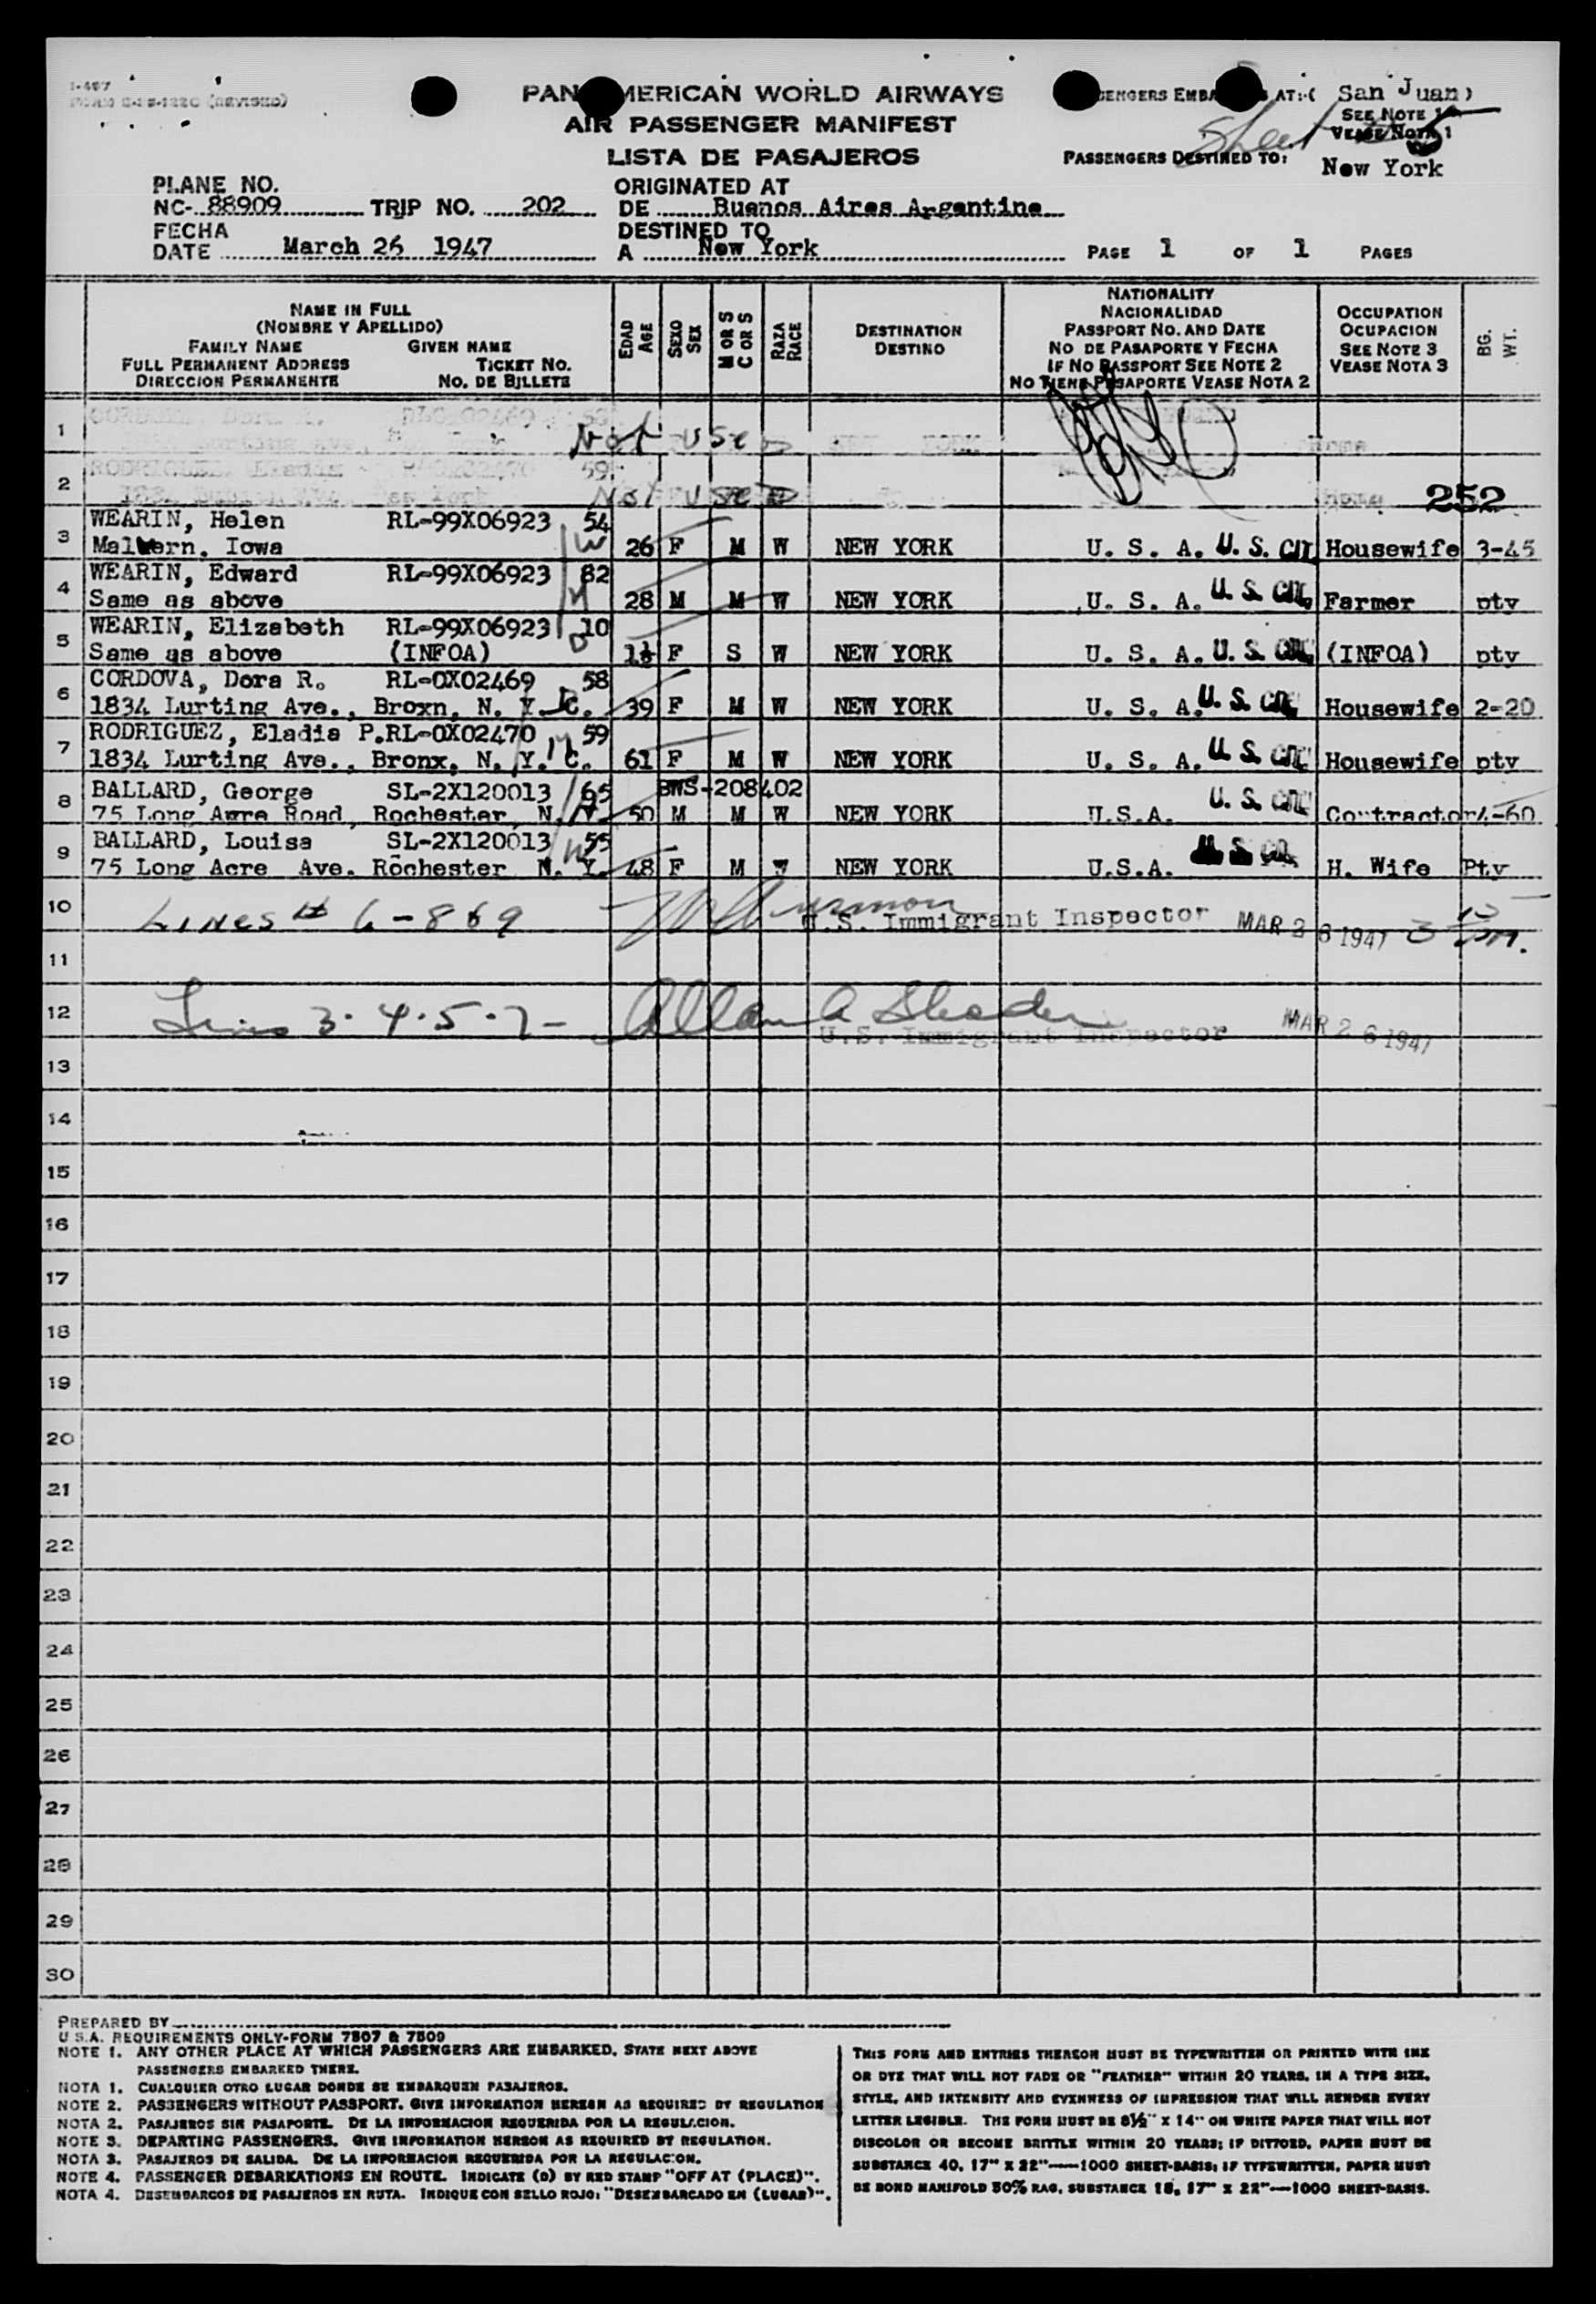 I-467
FORM S-15-122C (REVISED)
PAN AMERICAN WORLD AIRWAYS
AIR PASSENGER MANIFEST
LISTA DE PASAJEROS
PASSENGERS EMBARKED AT:-( San Juan)
SEE NOTE 1
VEASE NOTA 1
Sheet 5
PASSENGERS DESTINED TO: New York
PLANE NO.
NC- 88909 TRIP NO. 202
ORIGINATED AT
DE Buenos Aires Argentina
FECHA
DATE March 26 1947
DESTINED TO
A New York
PAGE 1 OF 1 PAGES
NAME IN FULL
(NOMBRE Y APELLIDO)
FAMILY NAME GIVEN NAME
FULL PERMANENT ADDRESS TICKET NO.
DIRECCION PERMANENTE NO. DE BILLETE
EDAD AGE
SEXO SEX
M OR S C OR S
RAZA RACE
DESTINATION
DESTINO
NATIONALITY
NACIONALIDAD
PASSPORT NO. AND DATE
NO DE PASAPORTE Y FECHA
IF NO PASSPORT SEE NOTE 2
NO TIENE PASAPORTE VEASE NOTA 2
OCCUPATION
OCUPACION
SEE NOTE 3
VEASE NOTA 3
BG. WT.
1 Not Used
2 Not Used 252
3 WEARIN, Helen RL-99X06923 54
Malvern, Iowa W 26 F M W NEW YORK U. S. A. U. S. CIT. Housewife 3-45
4 WEARIN, Edward RL-99X06923 82
Same as above 28 M M W NEW YORK U. S. A. U. S. CIT. Farmer pty
5 WEARIN, Elizabeth RL-99X06923 10
Same as above (INFOA) F S W NEW YORK U. S. A. U. S. CIT. (INFOA) pty
6 CORDOVA, Dora R. RL-0X02469 58
1834 Lurting Ave., Broxn, N. Y. C. 39 F M W NEW YORK U. S. A. U. S. CIT. Housewife 2-20
7 RODRIGUEZ, Eladia P. RL-0X02470 59
1834 Lurting Ave., Bronx, N. Y. C. 61 F M W NEW YORK U. S. A. U. S. CIT. Housewife pty
8 BALLARD, George SL-2X120013 65 BWS-208402
75 Long Awre Road, Rochester, N. Y. 50 M M W NEW YORK U.S.A. U. S. CIT. Contractor 4-60
9 BALLARD, Louisa SL-2X120013 55
75 Long Acre Ave. Rochester N. Y. 48 F M W NEW YORK U.S.A. U. S. CIT. H. Wife Pty
10 Lines # 6-8&9
U.S. Immigrant Inspector MAR 26 1947
11
12 Lines 3.4.5.7-
U.S. Immigrant Inspector MAR 26 1947
13
14
15
16
17
18
19
20
21
22
23
24
25
26
27
28
29
30
PREPARED BY
U S.A. REQUIREMENTS ONLY-FORM 7507 & 7509
NOTE 1. ANY OTHER PLACE AT WHICH PASSENGERS ARE EMBARKED, STATE NEXT ABOVE
PASSENGERS EMBARKED THERE.
NOTA 1. CUALQUIER OTRO LUGAR DONDE SE EMBARQUEN PASAJEROS.
NOTE 2. PASSENGERS WITHOUT PASSPORT. GIVE INFORMATION HEREON AS REQUIRED BY REGULATION
NOTA 2. PASAJEROS SIN PASAPORTE. DE LA INFORMACION REQUERIDA POR LA REGULACION.
NOTE 3. DEPARTING PASSENGERS. GIVE INFORMATION HEREON AS REQUIRED BY REGULATION.
NOTA 3. PASAJEROS DE SALIDA. DE LA INFORMACION REQUERIDA POR LA REGULACION.
NOTE 4. PASSENGER DEBARKATIONS EN ROUTE. INDICATE (D) BY RED STAMP "OFF AT (PLACE)".
NOTA 4. DESEMBARCOS DE PASAJEROS EN RUTA. INDIQUE CON SELLO ROJO: "DESEMBARCADO EN (LUGAR)".
THIS FORM AND ENTRIES THEREON MUST BE TYPEWRITTEN OR PRINTED WITH INK
OR DYE THAT WILL NOT FADE OR "FEATHER" WITHIN 20 YEARS, IN A TYPE SIZE,
STYLE, AND INTENSITY AND EVENNESS OF IMPRESSION THAT WILL RENDER EVERY
LETTER LEGIBLE. THE FORM MUST BE 8½" X 14" ON WHITE PAPER THAT WILL NOT
DISCOLOR OR BECOME BRITTLE WITHIN 20 YEARS; IF DITTOED, PAPER MUST BE
SUBSTANCE 40, 17" X 22"—1000 SHEET-BASIS; IF TYPEWRITTEN, PAPER MUST
BE BOND MANIFOLD 50% RAG, SUBSTANCE 18, 17" X 22"—1000 SHEET-BASIS.